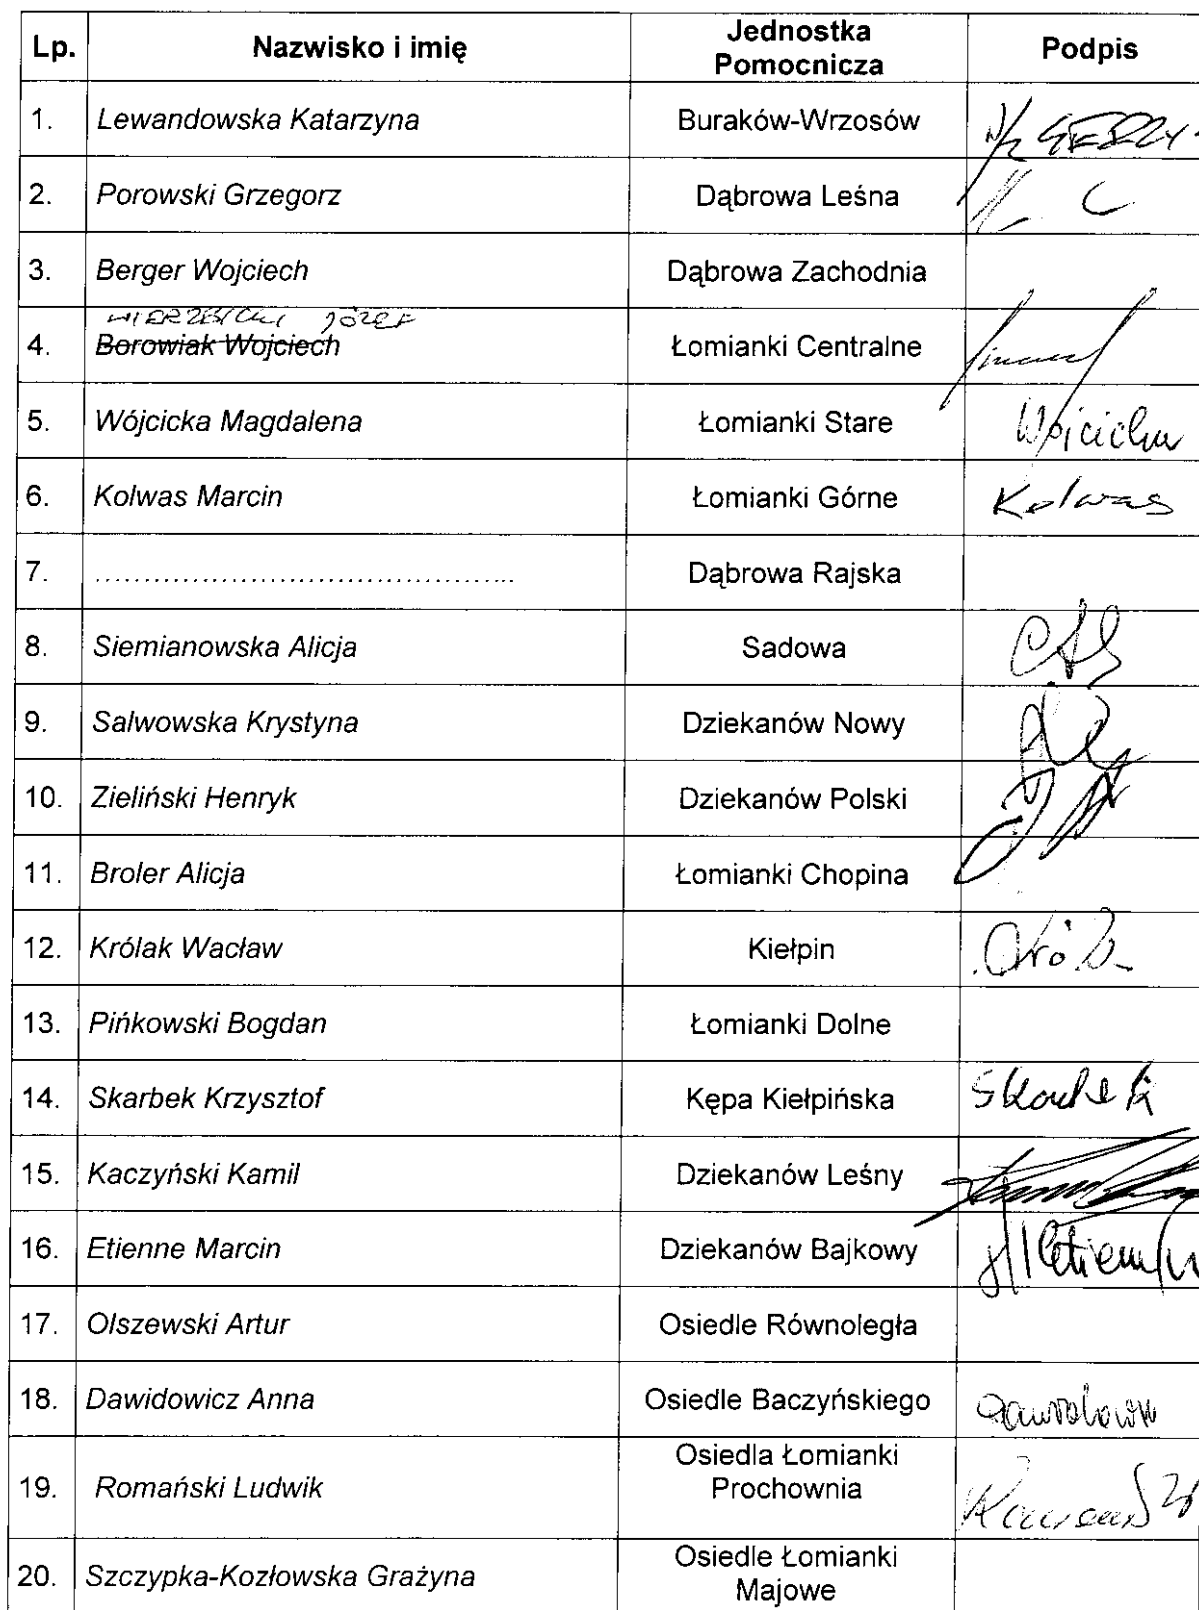 Lp. Nazwisko i imię Jednostka Pomocnicza Podpis
1. Lewandowska Katarzyna Buraków-Wrzosów
2. Porowski Grzegorz Dąbrowa Leśna
3. Berger Wojciech Dąbrowa Zachodnia
WIERZBICKI JÓZEF
4. Borowiak Wojciech Łomianki Centralne
5. Wójcicka Magdalena Łomianki Stare Wójcicka
6. Kolwas Marcin Łomianki Górne Kolwas
7. .......................................... Dąbrowa Rajska
8. Siemianowska Alicja Sadowa
9. Salwowska Krystyna Dziekanów Nowy
10. Zieliński Henryk Dziekanów Polski
11. Broler Alicja Łomianki Chopina
12. Królak Wacław Kiełpin
13. Pińkowski Bogdan Łomianki Dolne
14. Skarbek Krzysztof Kępa Kiełpińska Skarbek
15. Kaczyński Kamil Dziekanów Leśny
16. Etienne Marcin Dziekanów Bajkowy
17. Olszewski Artur Osiedle Równoległa
18. Dawidowicz Anna Osiedle Baczyńskiego
19. Romański Ludwik Osiedla Łomianki Prochownia
20. Szczypka-Kozłowska Grażyna Osiedle Łomianki Majowe